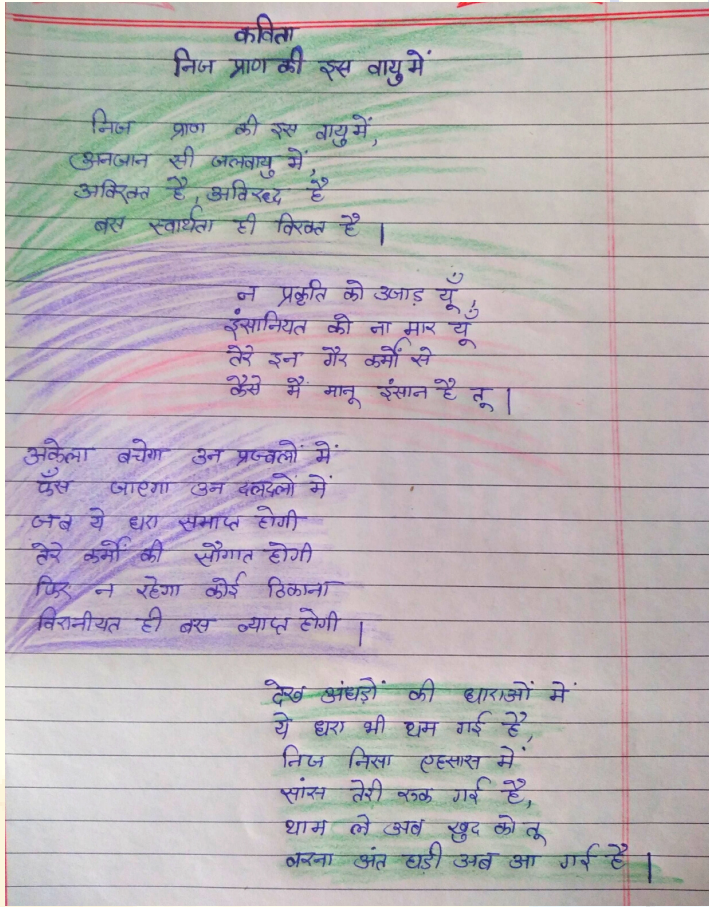 कविता
निज प्राण की इस वायु में
निज प्राण की इस वायु में,
अनजान सी जलवायु में,
अविरक्त है, अविरुद्ध है
बस स्वार्थता ही विरक्त है |
न प्रकृति को उजाड़ यूँ,
इंसानियत को ना मार यूँ
तेरे इन गैर कर्मों से
कैसे मैं मानू इंसान है तू |
अकेला बचेगा उन प्रज्वलों में
फँस जाएगा उन दलदलों में
जब ये धरा समाप्त होगी
तेरे कर्मों की सौगात होगी
फिर न रहेगा कोई ठिकाना
विरानीयत ही बस व्याप्त होगी |
देख अंधड़ों की धाराओं में
ये धरा भी थम गई है,
निज निसा एहसास में
सांस तेरी रुक गई है,
थाम ले अब खुद को तू
वरना अंत घड़ी अब आ गई है |